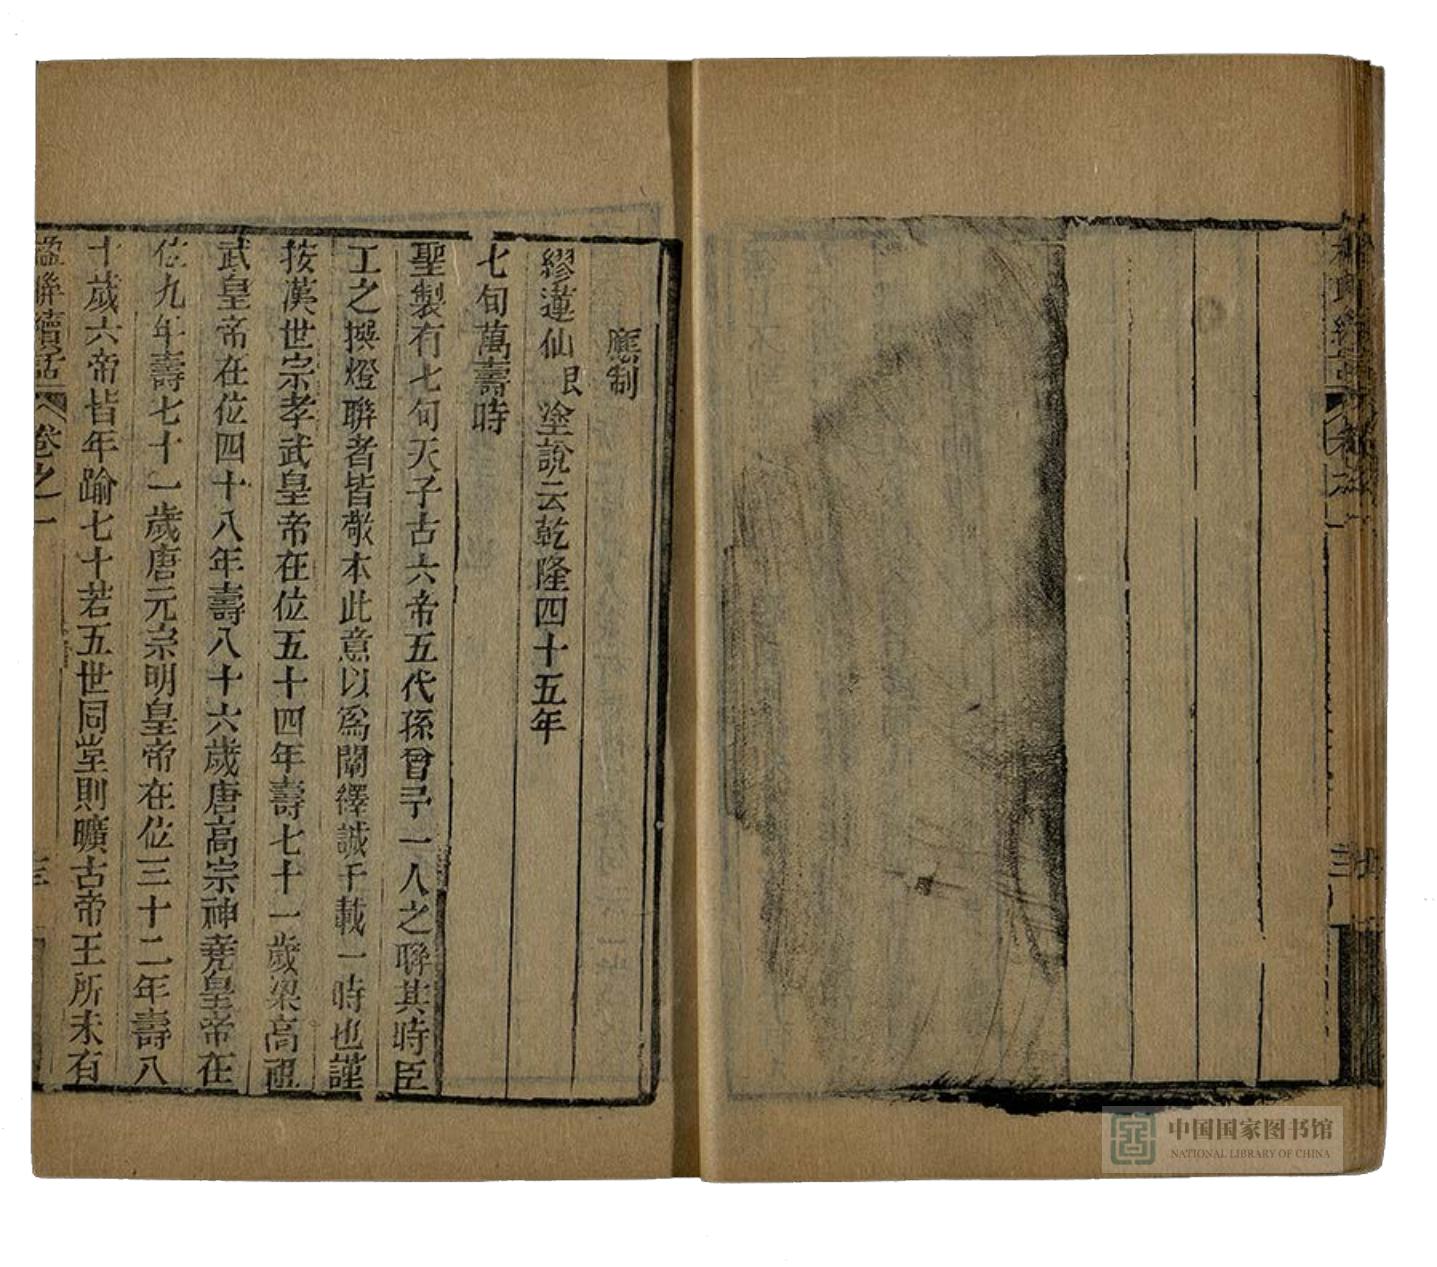 應制
繆蓮仙艮塗說云乾隆四十五年
七旬萬壽時
聖製有七旬天子古六帝五代孫曾予一人之聯其時臣
工之撰燈聯者皆敬本此意以爲闡繹誠千載一時也謹
按漢世宗孝武皇帝在位五十四年壽七十一歲梁高祖
武皇帝在位四十八年壽八十六歲唐高宗神堯皇帝在
位九年壽七十一歲唐元宗明皇帝在位三十二年壽八
十歲六帝皆年踰七十若五世同堂則曠古帝王所未有
楹聯續話 卷之一 三
中国国家图书馆
NATIONAL LIBRARY OF CHINA